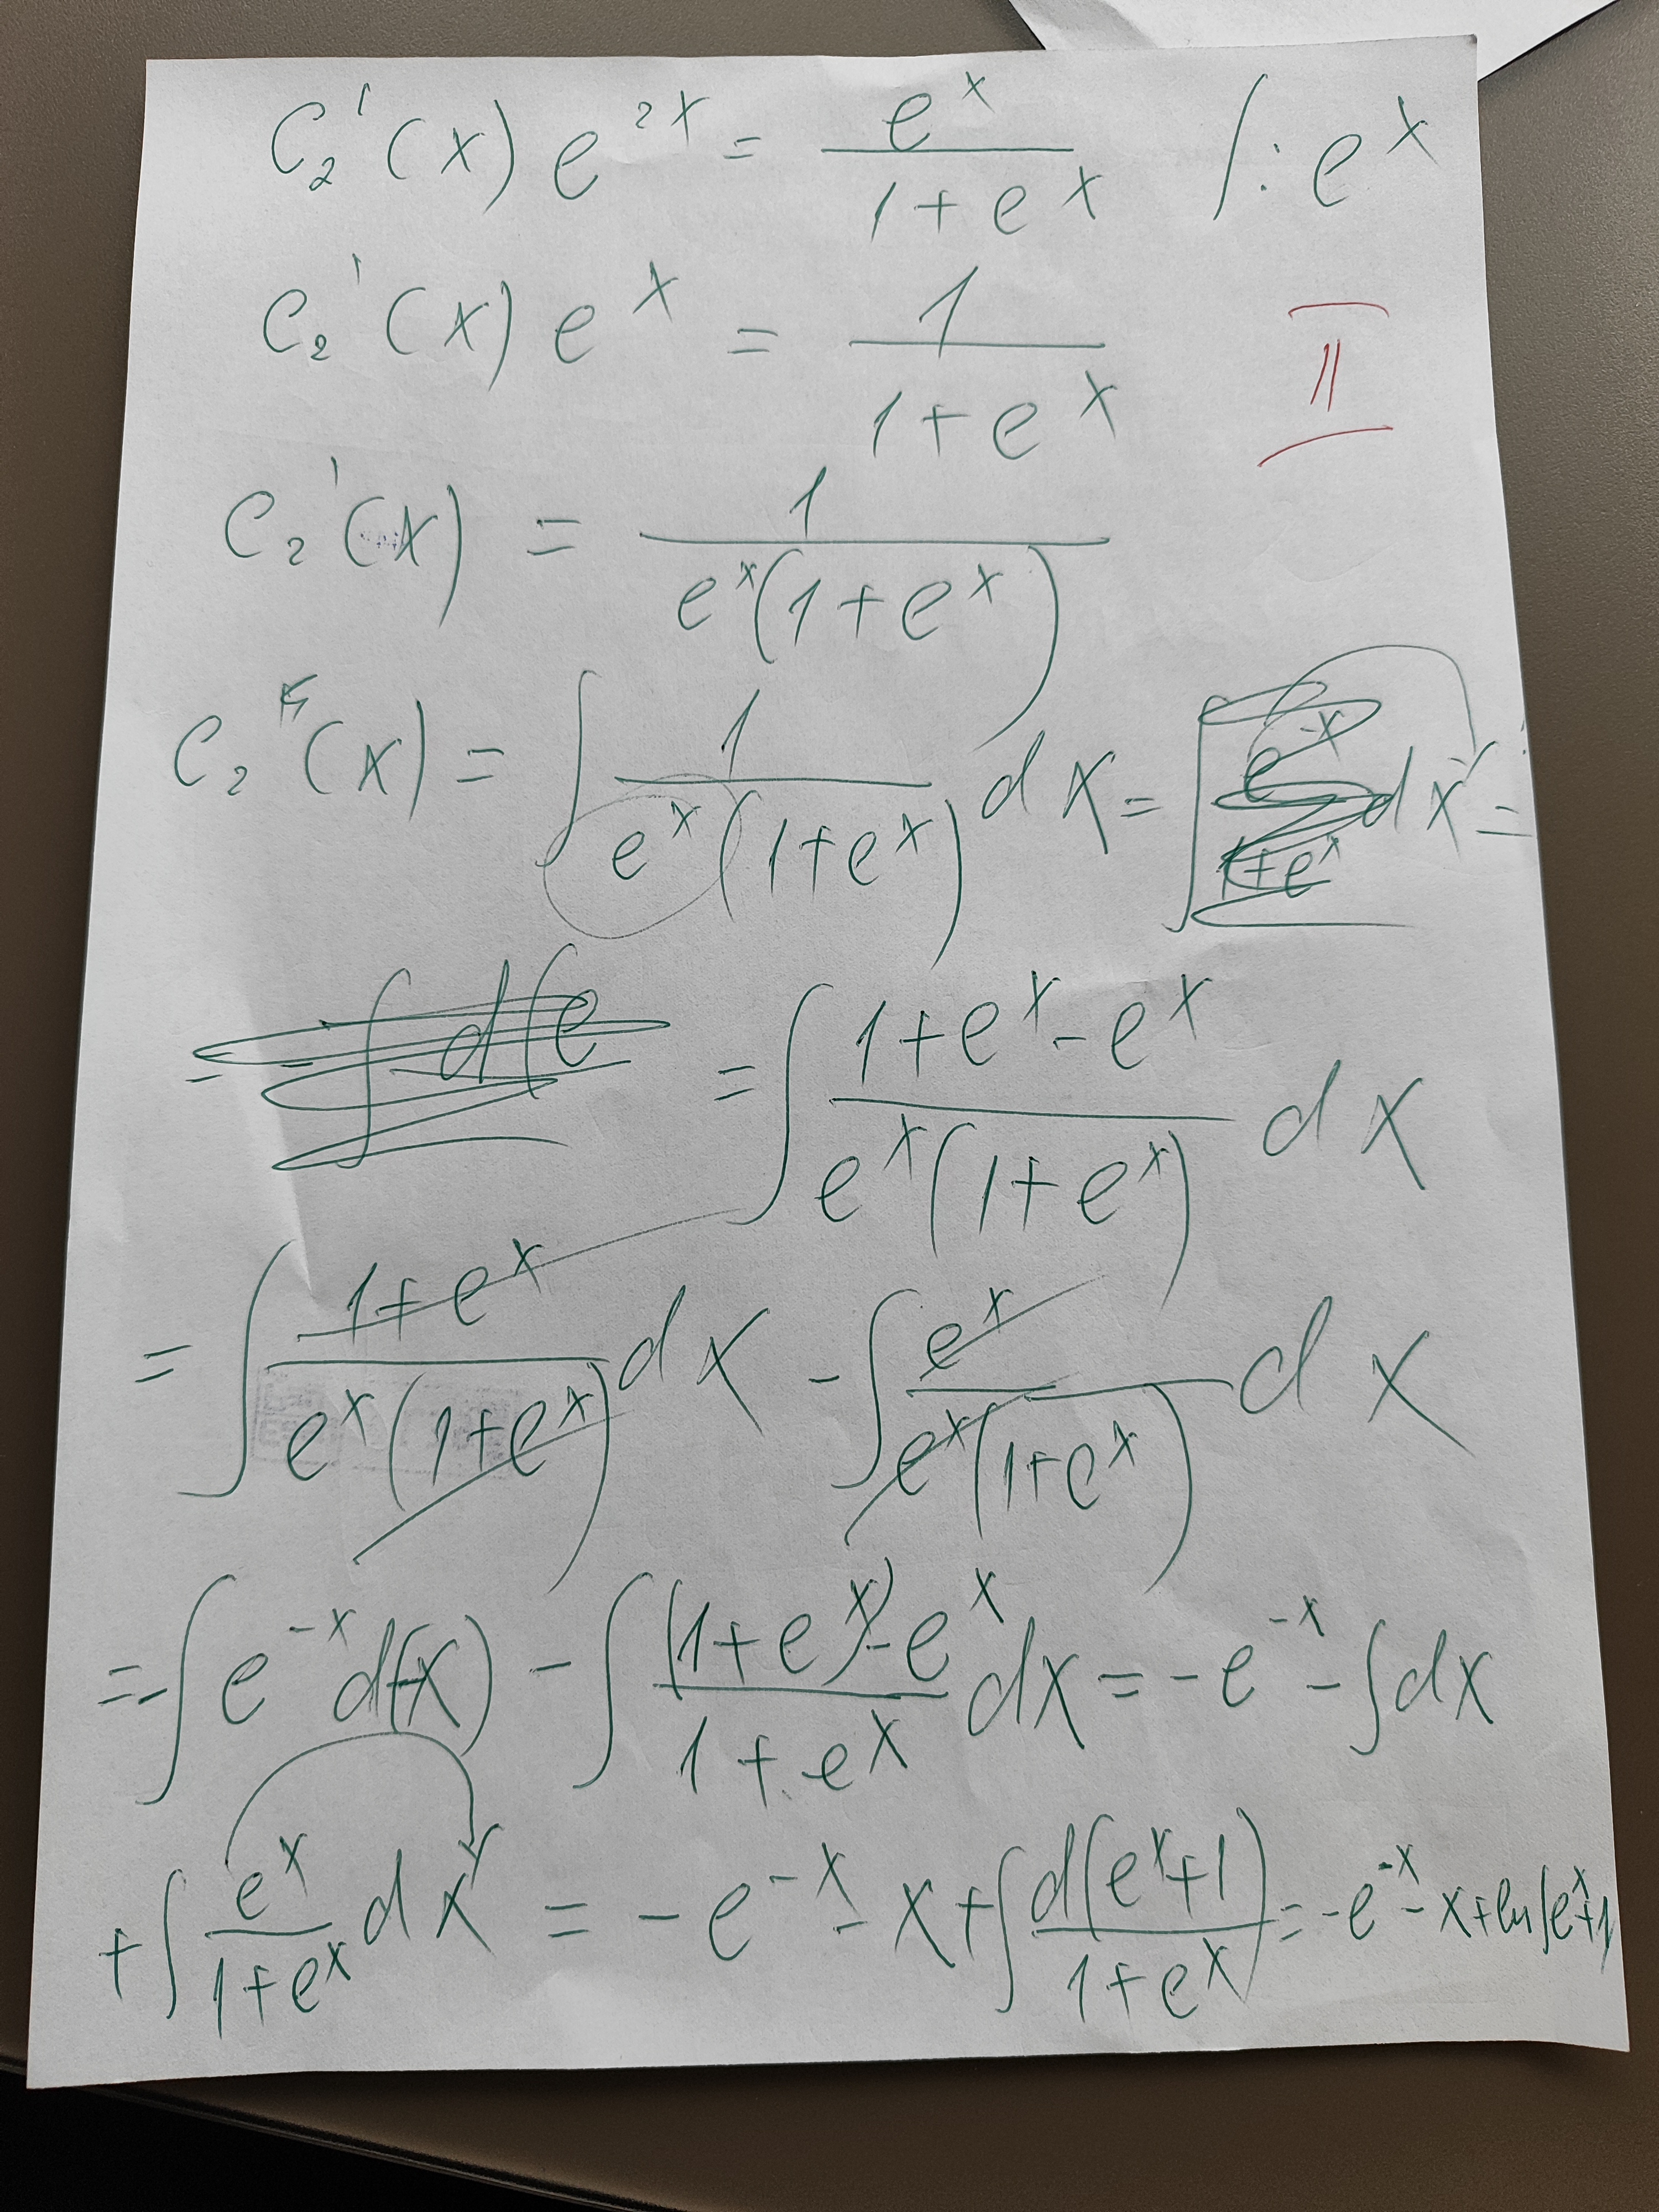 C₂'(x) e^{2x} = \frac{e^x}{1+e^x} /: e^x
C₂'(x) e^x = \frac{1}{1+e^x} II
C₂'(x) = \frac{1}{e^x(1+e^x)}
C₂(x) = ∫ \frac{1}{e^x(1+e^x)} dx = ∫ \frac{e^{-x}}{1+e^x} dx =
= -∫ d(e = ∫ \frac{1+e^x-e^x}{e^x(1+e^x)} dx
= ∫ \frac{1+e^x}{e^x(1+e^x)} dx - ∫ \frac{e^x}{e^x(1+e^x)} dx
= -∫ e^{-x} d(-x) - ∫ \frac{(1+e^x)-e^x}{1+e^x} dx = -e^{-x} - ∫ dx
+ ∫ \frac{e^x}{1+e^x} dx = -e^{-x} - x + ∫ \frac{d(e^x+1)}{1+e^x} = -e^{-x} - x + ln(e^x+1)